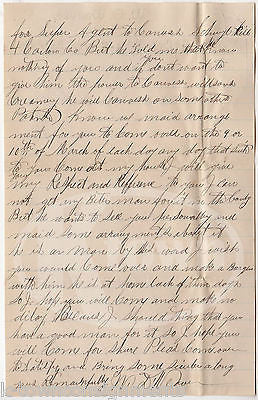 for Super Agent to Canvas Schuyl Kill
& Carbon Co But he Told me that I was
nothing of you and if you don't want to
give him the power to Canvass
Creamy he will Canvass on some other
Patent I know us maid arrange
ment for you to Come over on the 9 or
10th of March of each day any day that suits
to you Come at my house I will give
my Respect and Refrane to you I can
not get any better man for it in the County
But he wants to See you personaly and
maid some arrangement about it
he is an man by his word I wish
you would Come over and make a Bargen
with him he is at home each of them days
So I hope you will Come and make no
delay He Leaves I should thing that you
had a good man for it So I hope you
will Come for Shure Pleas Come over
and Bring some along
yous Remarkfully Wm F